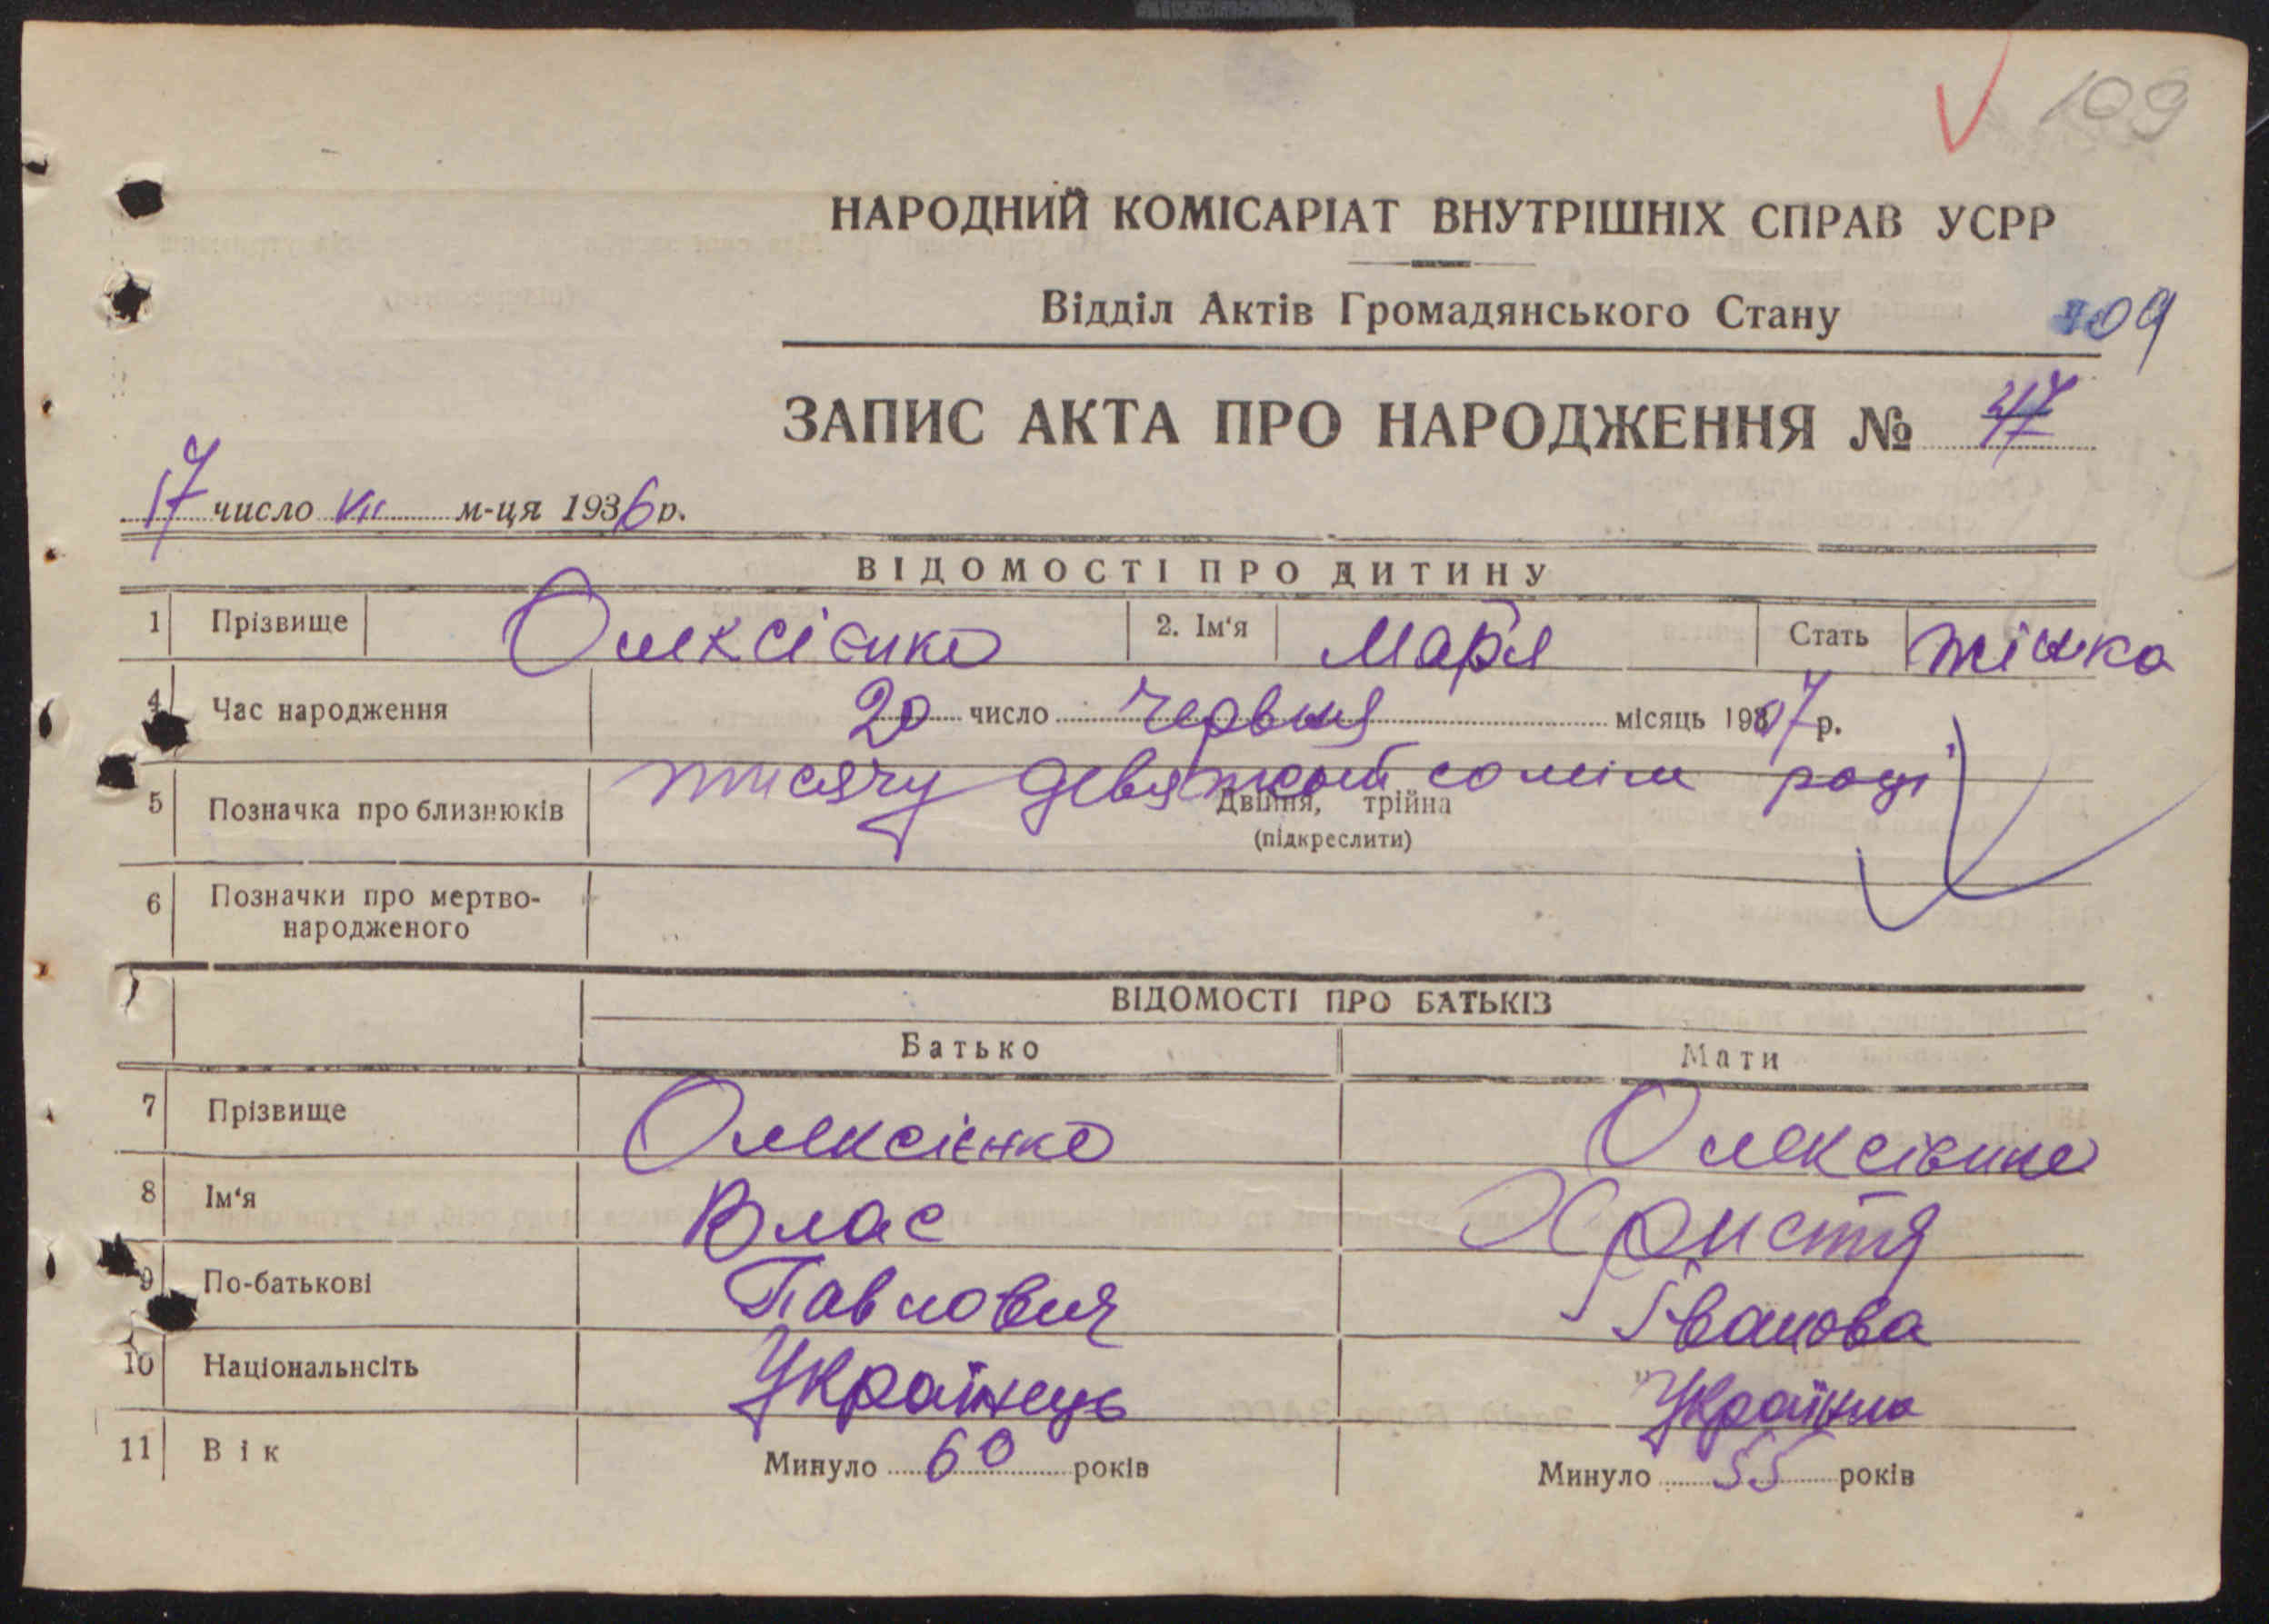 109
НАРОДНИЙ КОМІСАРІАТ ВНУТРІШНІХ СПРАВ УСРР
Відділ Актів Громадянського Стану
109
ЗАПИС АКТА ПРО НАРОДЖЕННЯ № 47
17 число VII м-ця 1936 р.
ВІДОМОСТІ ПРО ДИТИНУ
1 Прізвище Олексієнко 2. Ім'я Мар'я Стать жінка
4 Час народження 20 число червня місяць 1907 р.
тисячу девятсот сомім році
5 Позначка про близнюків Двійня, трійна
(підкреслити)
6 Позначки про мертво-
народженого
ВІДОМОСТІ ПРО БАТЬКІЗ
Батько Мати
7 Прізвище Олексієнко Олексієнко
8 Ім'я Влас Христя
9 По-батькові Павлович Іванова
10 Національнсіть Українець Українка
11 Вік Минуло 60 років Минуло 55 років